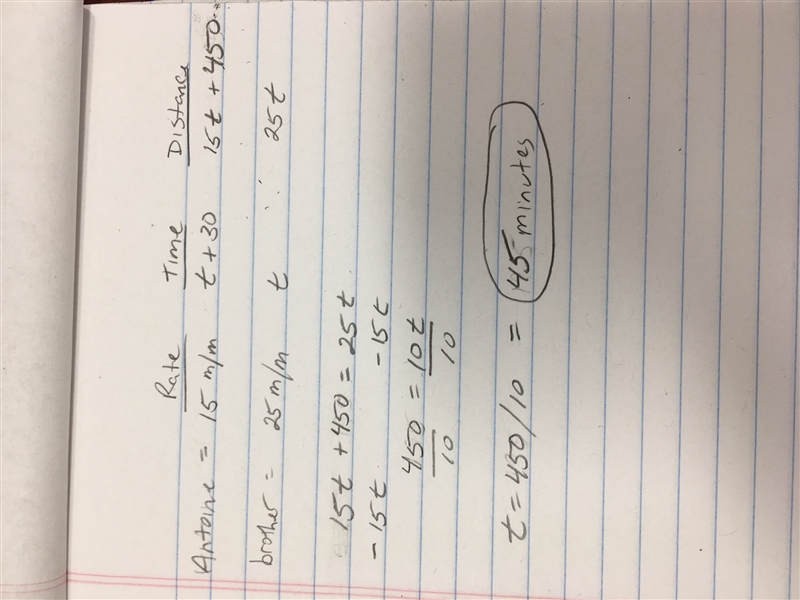 Rate Time Distance
Antoine = 15 m/m t + 30 15t + 450
brother = 25 m/m t 25t
15t + 450 = 25t
- 15t - 15t
450 = 10t
10 10
t = 450/10 = 45 minutes